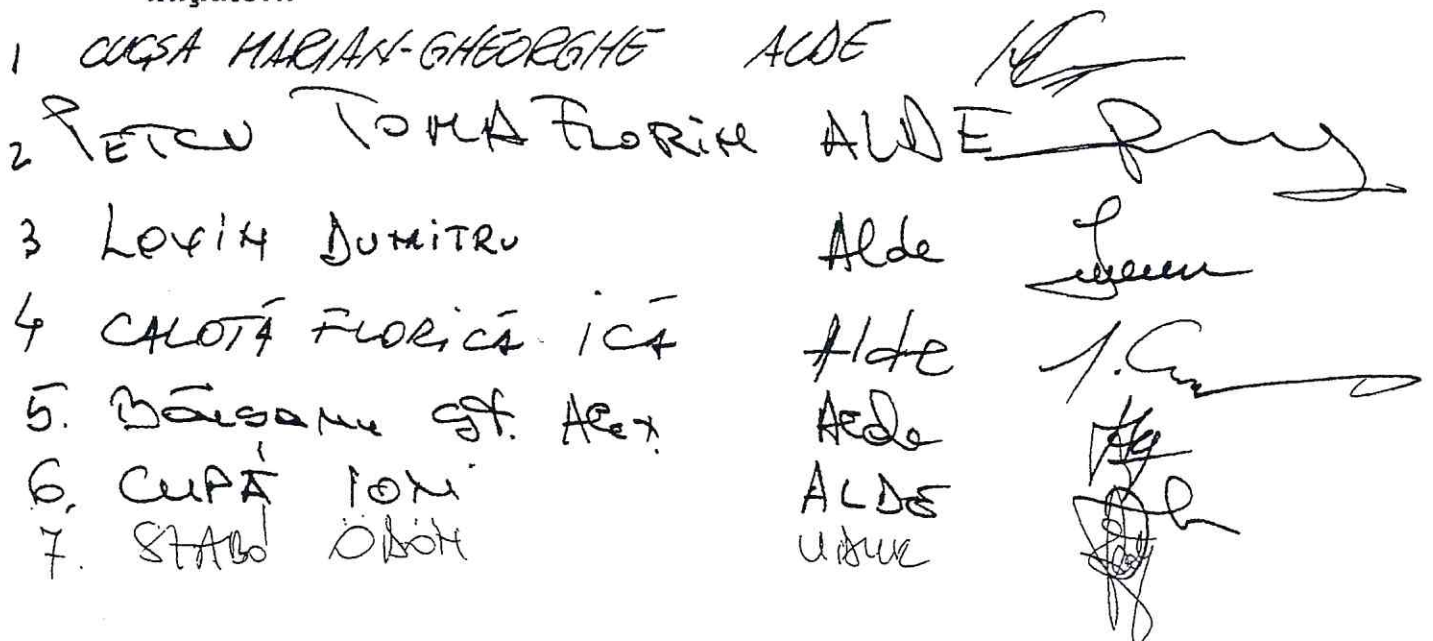 1 CUCȘA MARIAN-GHEORGHE ALDE
2 PETCU TOMA FLORIN ALDE
3 LOVIN DUMITRU Alde
4 CALOTĂ FLORICĂ ICĂ Alde
5. St. Alex Alde
6. CUPĂ ION ALDE
7. SZABÓ ÖDÖN UDMR